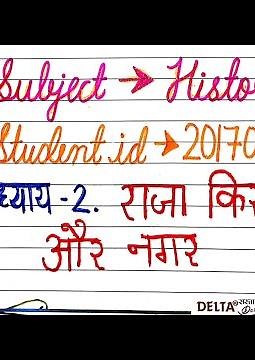 Subject → Histo
Student id → 20170
ध्याय - 2. राजा कि
और नगर
DELTA